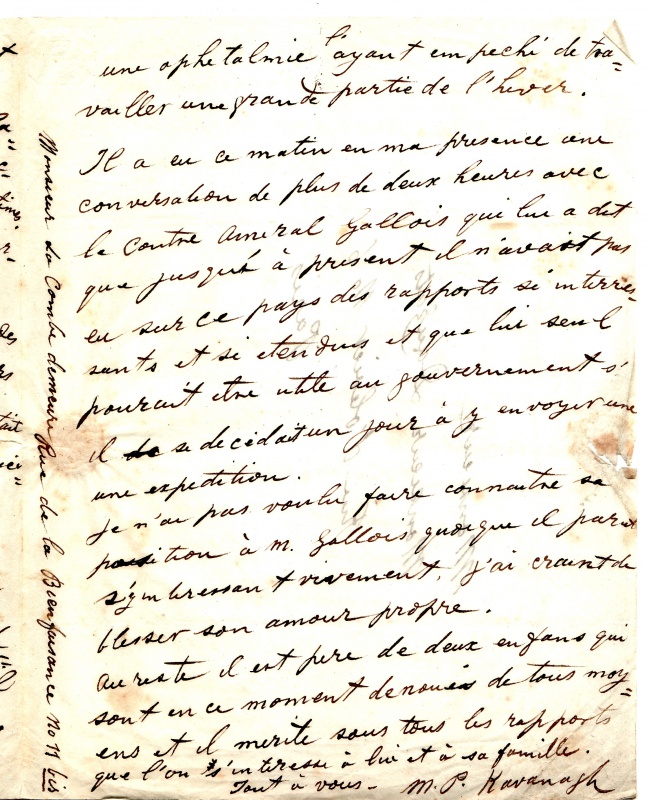 une ophetalmie l'ayant empeché de tra=
vailler une grande partie de l'hiver.
Il a eu ce matin en ma presence une
conversation de plus de deux heures avec
le Contre Ameral Gallois qui lui a dit
que jusqu'à présent il n'avait pas
eu sur ce pays des rapports si interres=
sants et si etendus et que lui seul
pourait etre utile au gouvernement s'
il se decidait un jour à y envoyer une
une expedition.
Je n'ai pas voulu faire connaitre sa
position à M. Gallois quoique il parut
s'y interessant vivement, j'ai craint de
blesser son amour propre.
Au reste il est pere de deux enfans qui
sont en ce moment denoués de tous moy=
ens et il merite sous tous les rapports
que l'on s'interesse à lui et à sa famille.
Tout à vous - M. P. Kavanagh
Monsieur La Combe demeure Rue de la Bienfaisance no 11 bis